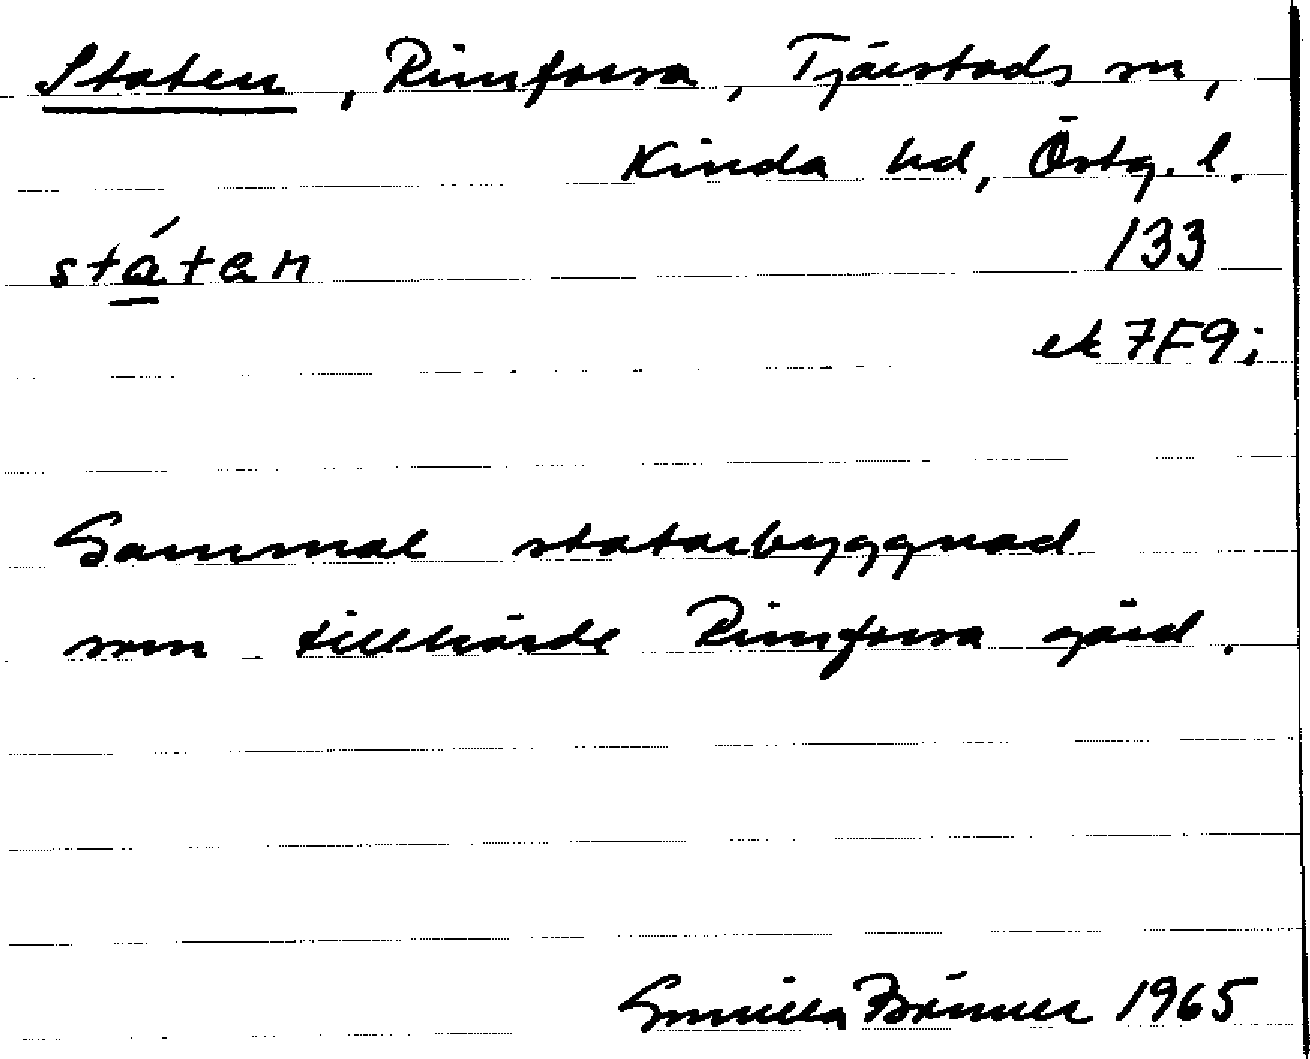 Staten, Rimforsa, Tjärstads sn,
Kinda hd, Östg. l.
státan 133
ek 7F9i
Gammal statarbyggnad
som tillhörde Rimforsa gård.
Gunilla 1965